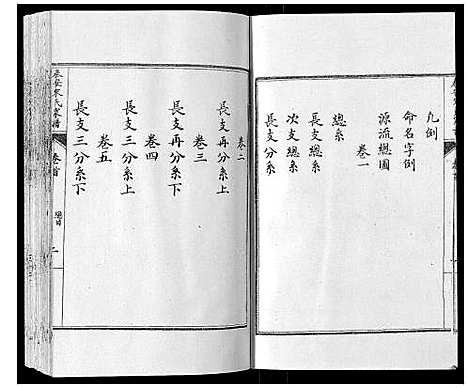 凡例
命名字例
源流總圖
卷一
總系
長支總系
次支總系
長支分系
卷二
長支再分系上
卷三
長支再分系下
卷四
長支三分系上
卷五
長支三分系下
氏家譜
卷首
總目
二